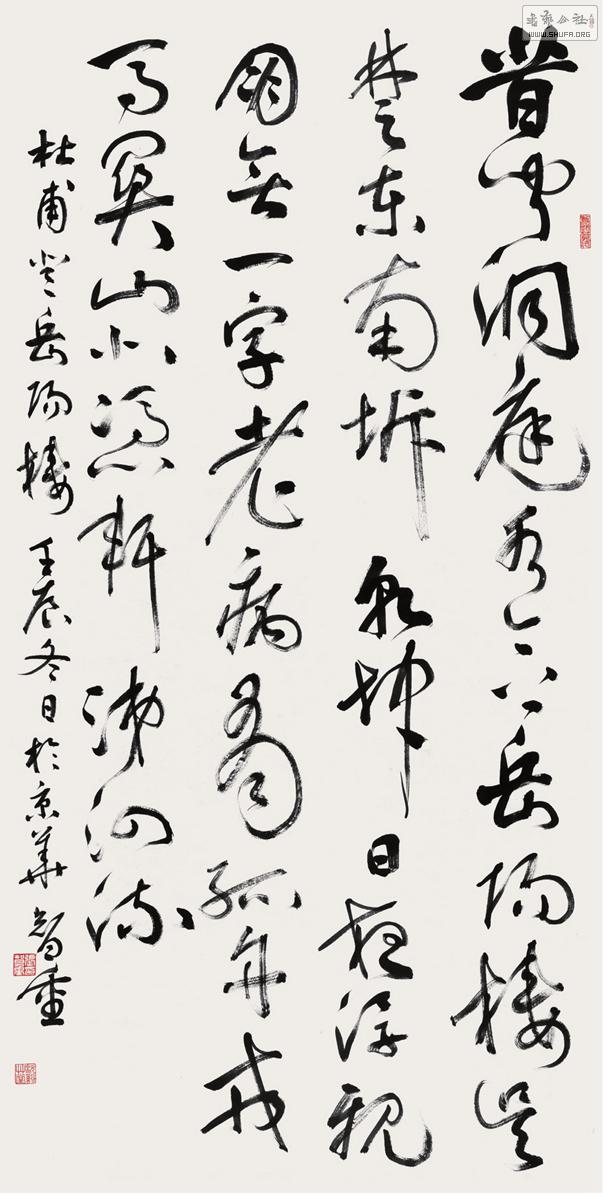 書藝公社
WWW.SHUFA.ORG
昔聞洞庭水今上岳陽樓吳
楚東南坼乾坤日夜浮親
朋無一字老病有孤舟戎
馬關山北憑軒涕泗流
杜甫登岳陽樓 壬辰冬日於京華 智重